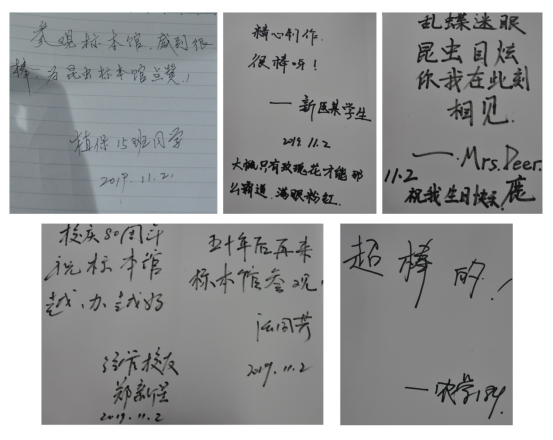 参观标本馆,感到很
棒,为昆虫标本馆点赞!
植保15班同学
2019.11.2.
精心制作.
很棒呀!
——新医某学生
2019.11.2
大概只有玫瑰花才能那
么霸道.满眼粉红.
乱蝶迷眼
昆虫目炫
你我在此刻
相见.
——Mrs.Deer.
11.2
祝我生日快乐.鹿
校庆80周年
祝标本馆
越办越好
校友
郑新
2019.11.2
五十年后再来
标本馆参观!
2019.11.2
超棒的!
——农学184.